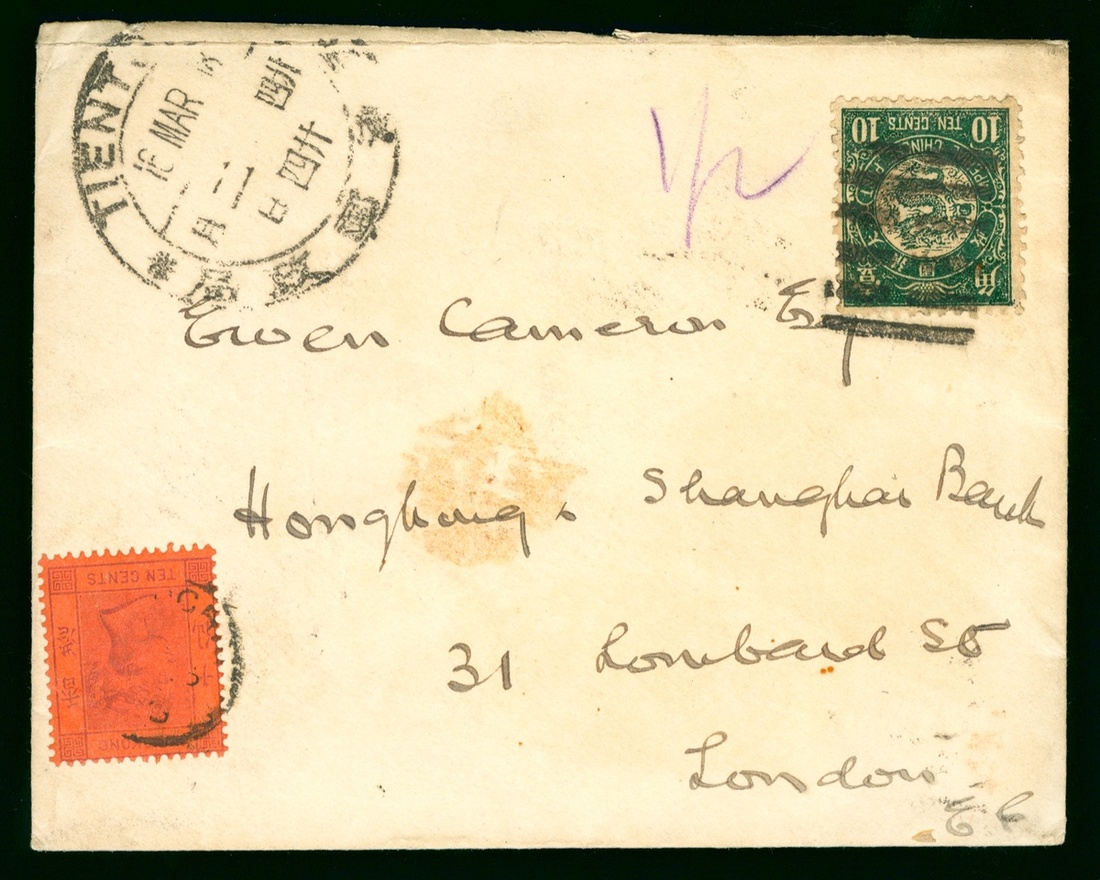 TIENT
16 MAR
11
月
廿四日
1/2
10 TEN CENTS 10
CHIN
角
Ewen Cameron Esq
Hongkong & Shanghai Bank
31 Lombard St
London
E C
TEN CENTS
KONG